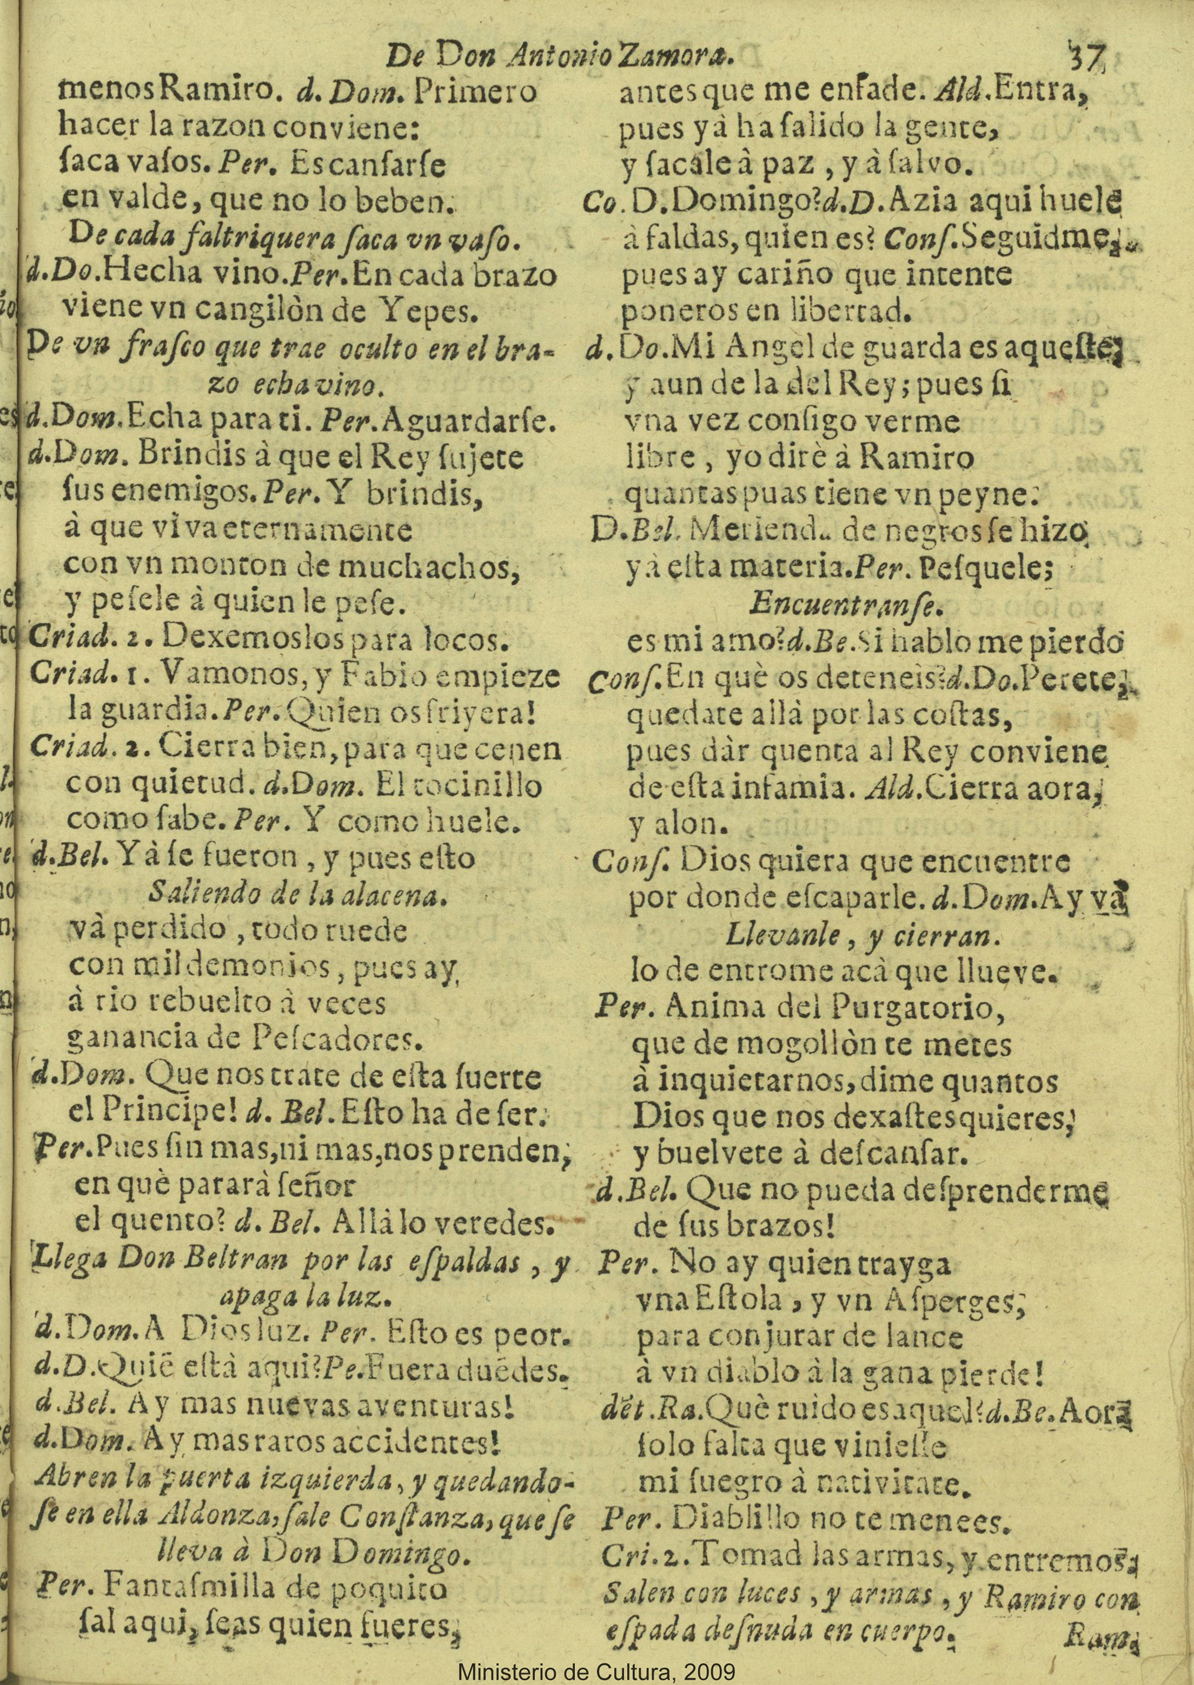 De Don Antonio Zamora.
37
menos Ramiro. d. Dom. Primero
hacer la razon conviene:
ſaca vaſos. Per. Es canſarſe
en valde, que no lo beben.
De cada faltriquera ſaca vn vaſo.
d.Do.Hecha vino.Per.En cada brazo
viene vn cangilòn de Yepes.
De vn fraſco que trae oculto en el bra-
zo echa vino.
d.Dom.Echa para ti. Per.Aguardarſe.
d.Dom. Brindis à que el Rey ſujete
ſus enemigos. Per. Y brindis,
à que viva eternamente
con vn monton de muchachos,
y peſele à quien le peſe.
Criad. 2. Dexemoslos para locos.
Criad. 1. Vamonos, y Fabio empieze
la guardia. Per. Quien os friyera!
Criad. 2. Cierra bien, para que cenen
con quietud. d.Dom. El tocinillo
como ſabe. Per. Y como huele.
d.Bel. Yà ſe fueron, y pues eſto
Saliendo de la alacena.
và perdido, todo ruede
con mil demonios, pues ay
à rio rebuelto à veces
ganancia de Peſcadores.
d.Dom. Que nos trate de eſta ſuerte
el Principe! d. Bel. Eſto ha de ſer.
Per.Pues ſin mas, ni mas, nos prenden,
en què pararà ſeñor
el quento? d. Bel. Allà lo veredes.
Llega Don Beltran por las eſpaldas, y
apaga la luz.
d.Dom.A Dios luz. Per. Eſto es peor.
d.D.Quiē eſtà aqui?Pe.Fuera duēdes.
d.Bel. Ay mas nuevas aventuras!
d.Dom. Ay mas raros accidentes!
Abren la puerta izquierda, y quedando-
ſe en ella Aldonza, ſale Conſtanza, que ſe
lleva à Don Domingo.
Per. Fantaſmilla de poquito
ſal aqui, ſeas quien fueres,
antes que me enfade. Ald.Entra,
pues yà ha ſalido la gente,
y ſacale à paz, y à ſalvo.
Co. D.Domingo?d.D.Azia aqui huele
à faldas, quien es? Conſ.Seguidme,
pues ay cariño que intente
poneros en libertad.
d.Do.Mi Angel de guarda es aqueſte,
y aun de la del Rey; pues ſi
vna vez conſigo verme
libre, yo dirè à Ramiro
quantas puas tiene vn peyne.
D.Bel. de negros ſe hizo
yà eſta materia.Per. Peſquele;
Encuentranſe.
es mi amo?d.Be.Si hablo me pierdo
Conſ.En què os deteneis?d.Do.Perete,
quedate allà por las coſtas,
pues dàr quenta al Rey conviene
de eſta infamia. Ald.Cierra aora,
y alon.
Conſ. Dios quiera que encuentre
por donde eſcaparle. d.Dom.Ay và
Llevanle, y cierran.
lo de entrome acà que llueve.
Per. Anima del Purgatorio,
que de mogollòn te metes
à inquietarnos, dime quantos
Dios que nos dexaſtes quieres,
y buelvete à deſcanſar.
d.Bel. Que no pueda deſprenderme
de ſus brazos!
Per. No ay quien trayga
vna Eſtola, y vn Aſperges,
para conjurar de lance
à vn diablo à la gana pierde!
dēt.Ra.Què ruido es aquel?d.Be.Aora
ſolo falta que vinieſſe
mi ſuegro à nativitate.
Per. Diablillo no te menees.
Cri.2.Tomad las armas, y entremos,
Salen con luces, y armas, y Ramiro con
eſpada deſnuda en cuerpo.
Ram.
Ministerio de Cultura, 2009